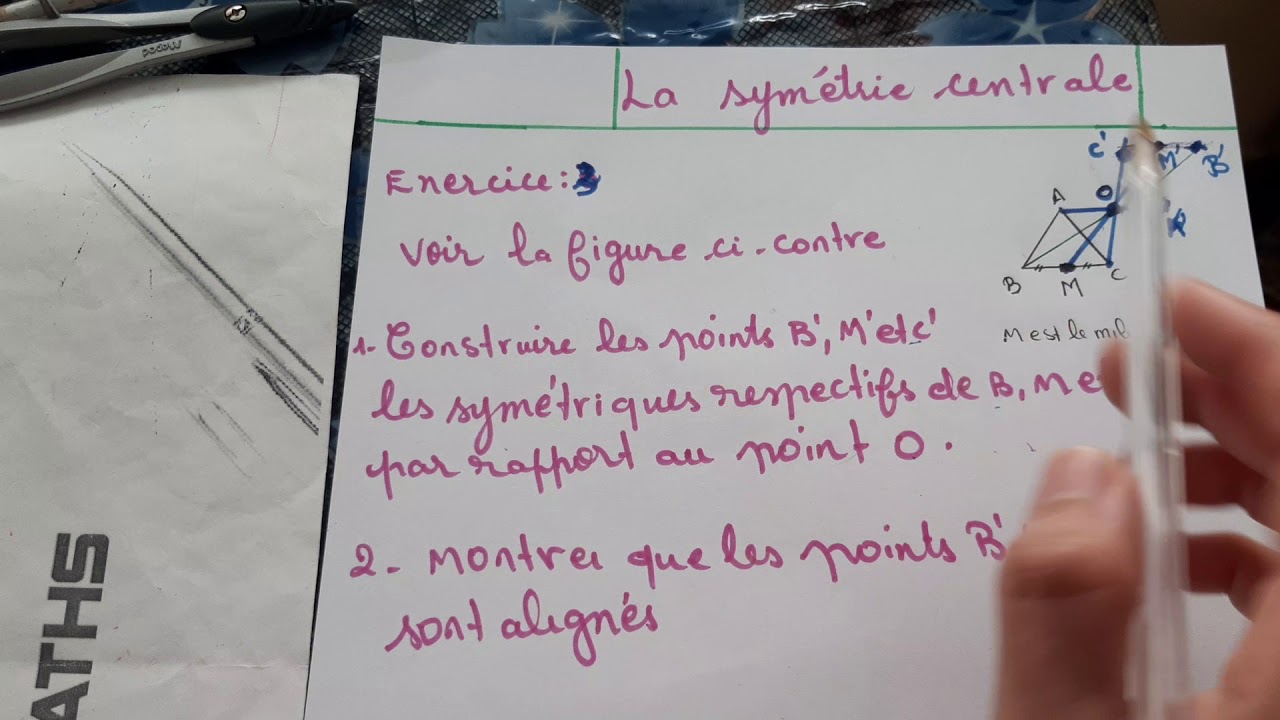 Maped
La symétrie centrale
Enercice: 3
C' M' B'
A O
voir la figure ci-contre
B M C
M est le mil
1- Construire les points B', M' et C'
les symétriques respectifs de B, M e
par rapport au point O.
2- Montrer que les points B'
sont alignés
MATHS